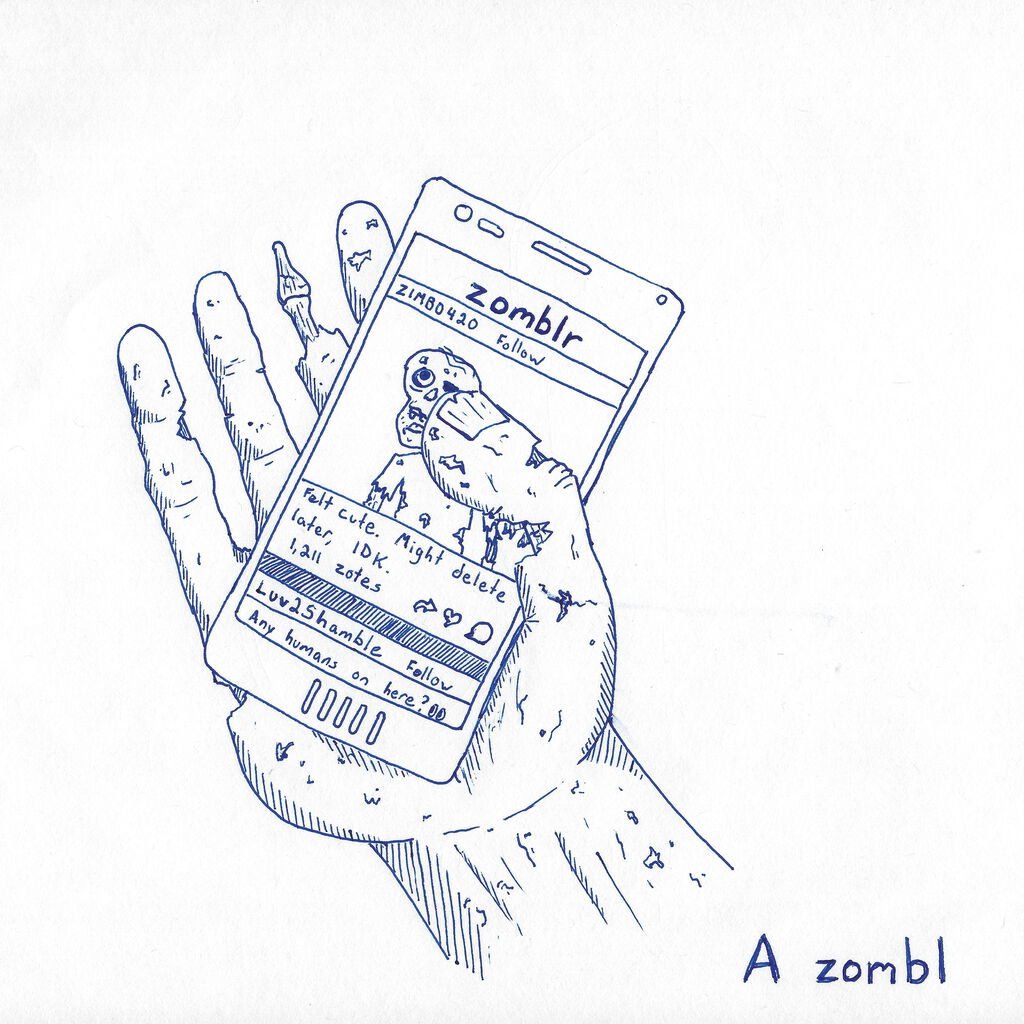 zomblr
ZIMBO420 Follow
Felt cute. Might delete
later, IDK.
1,211 zotes
Luv2Shamble Follow
Any humans on here?
A zombl